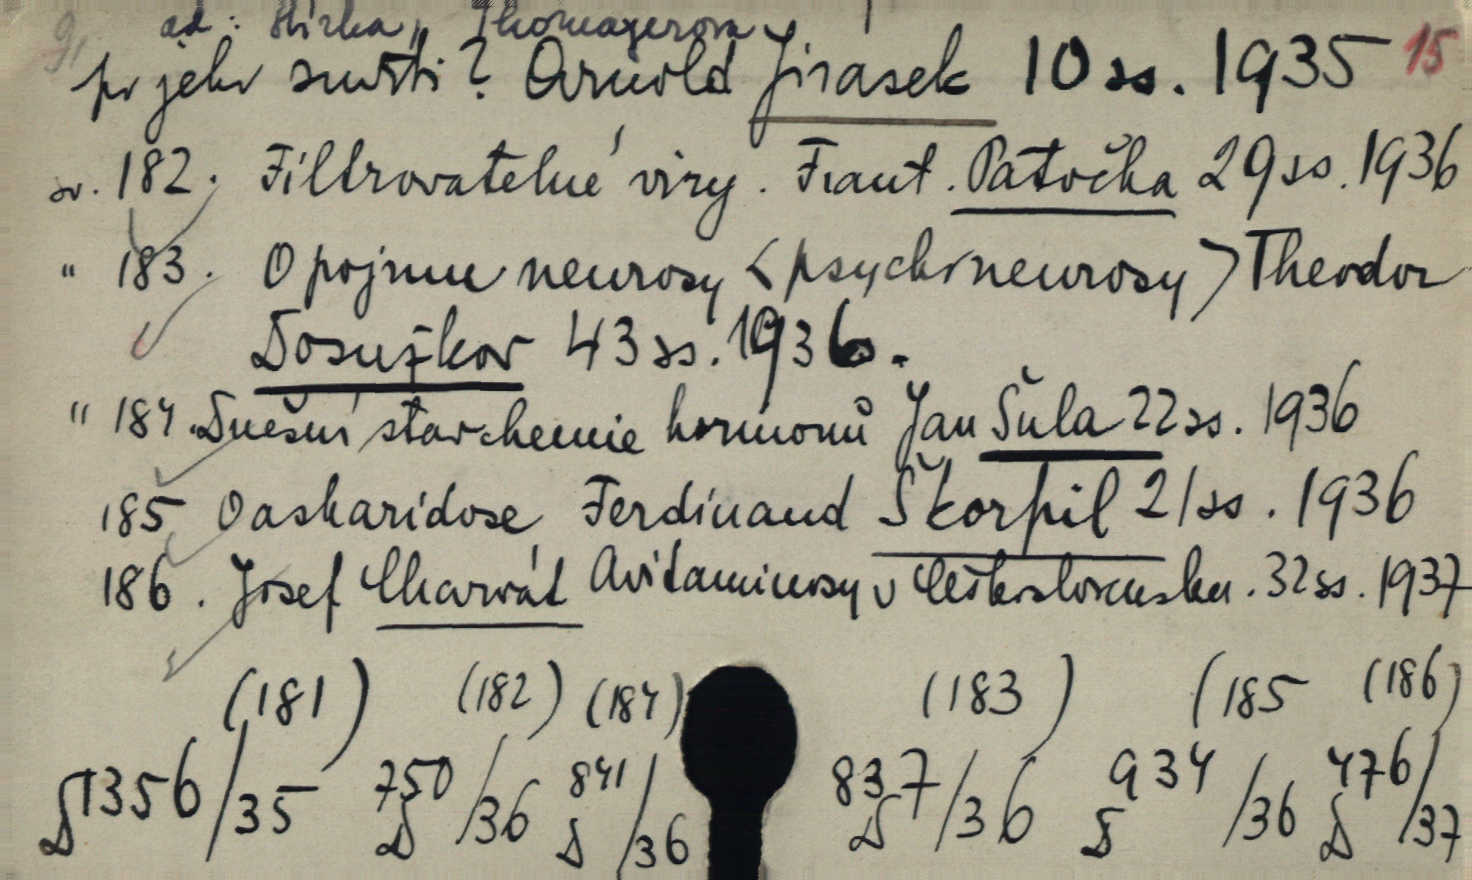 po jeho smrti? Arnold Jirásek 10 ss. 1935 15
sv. 182. Filtrovatelné viry. Frant. Patočka 29 ss. 1936
" 183. O pojmu neurosy <psychoneurosy> Theodor
Dosužkov 43 ss. 1936.
" 184. Dnešní stav chemie hormonů Jan Šula 22 ss. 1936
185 O askaridose Ferdinand Škorpil 21 ss. 1936
186. Josef Charvát Avitaminosy v Československu. 32 ss. 1937
(181) (182) (184) (183) (185 (186)
D 1356/35 750/36 D 841/36 D 837/36 D 934/36 D 476/37 D